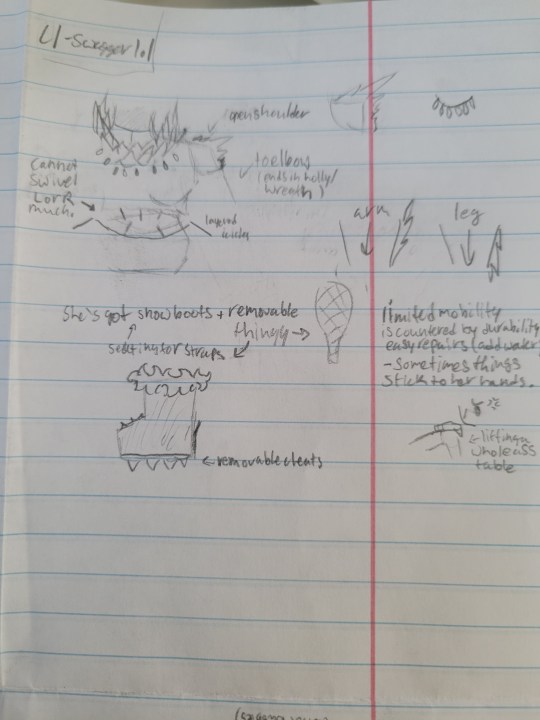 open shoulder
Cannot
Swivel
L or R
much.
to elbow
(ends in holly/
wreath)
layered
icicles
arm
leg
She's got snowboots + removable
thingy →
for straps
← removable cleats
limited mobility
is countered by durability
easy repairs (add water)
- Sometimes things
stick to her hands.
← lifting a
whole ass
table